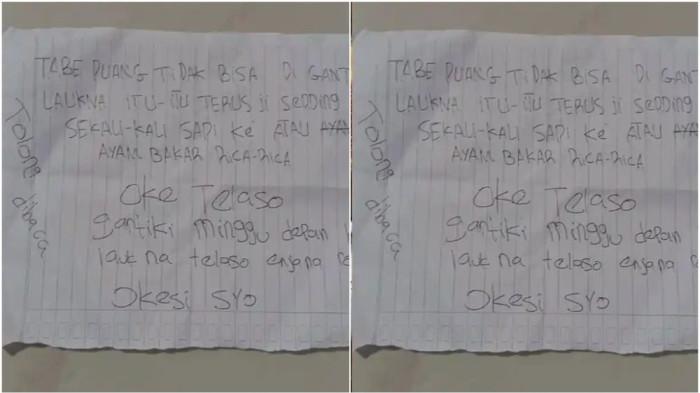 Tolong dibaca
TABE PUANG TIDAK BISA DI GANT
LAUKNA ITU-ITU TERUS ji SEDDING
SEKALI-KALI SAPI KE ATAU AYA
AYAM BAKAR RICA-RICA
Oke Telaso
gantiki minggu depan
lauk na telaso enjana
Okesi SYO
Tolong dibaca
TABE PUANG TIDAK BISA DI GANT
LAUKNA ITU-ITU TERUS ji SEDDING
SEKALI-KALI SAPI KE ATAU AYA
AYAM BAKAR RICA-RICA
Oke Telaso
gantiki minggu depan
lauk na telaso enjana
Okesi SYO